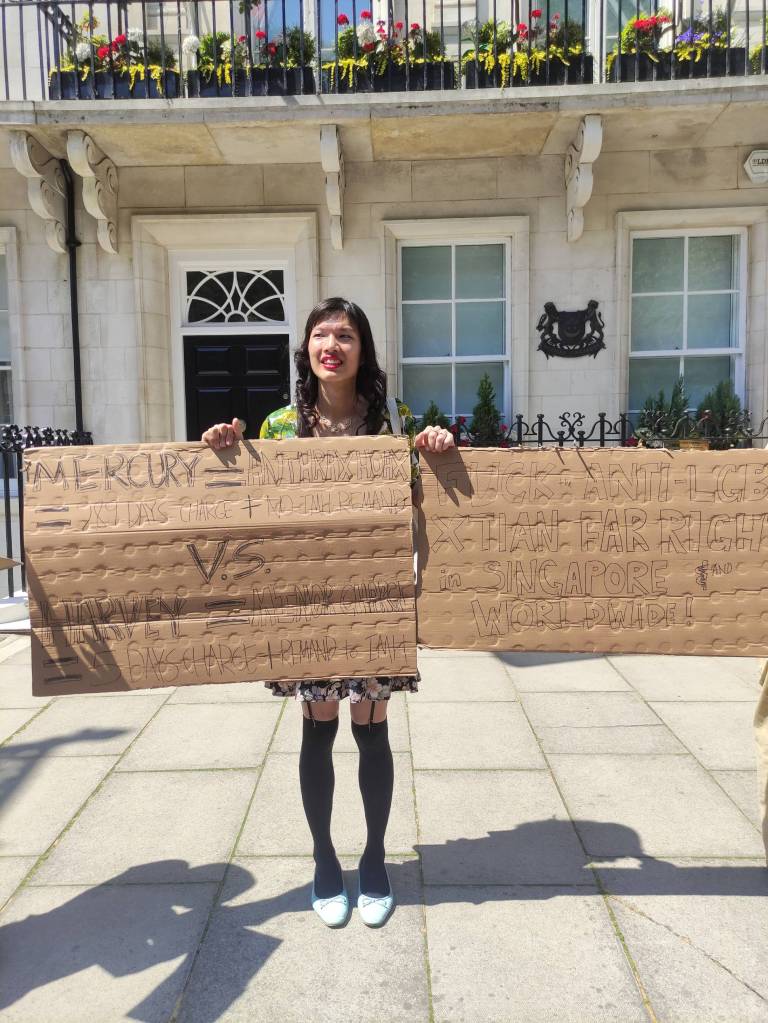 MERCURY = ANTHRAX HOAX
= DAYS CHARGE + NO-IMH REMAND
V.S.
HARVEY = MINOR CHARGE
= DAYS CHARGE + REMAND to IMH
FUCK ANTI-LGB
XTIAN FAR RIGH
in SINGAPORE AND
WORLDWIDE!